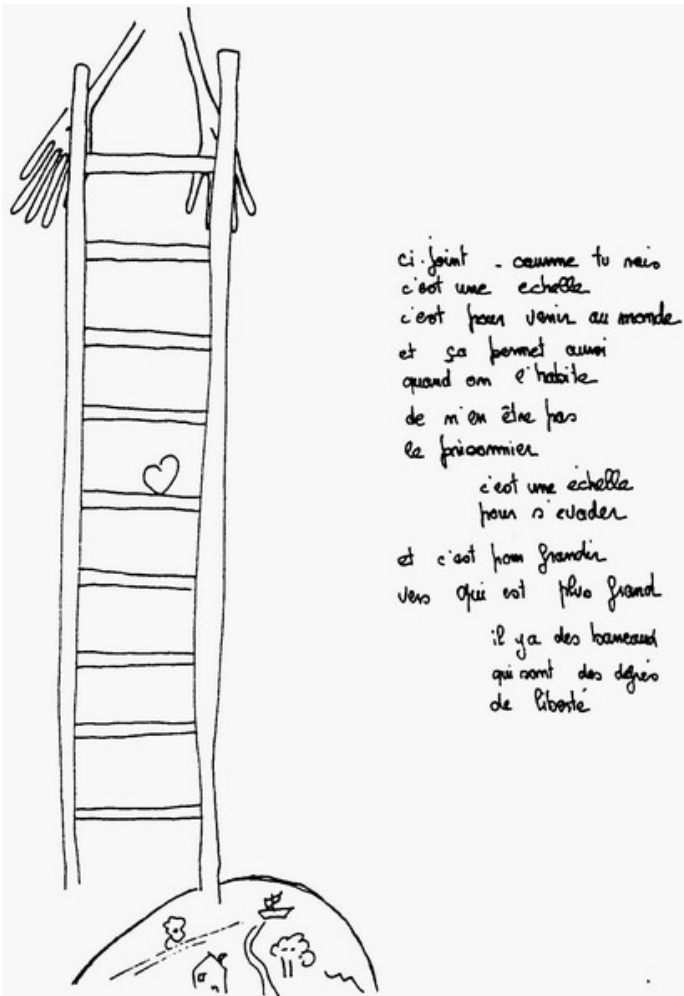 ci-joint - comme tu vois
c'est une echelle
c'est pour venir au monde
et ça permet aussi
quand on l'habite
de n'en être pas
le prisonnier
c'est une échelle
pour s'evader
et c'est pour grandir
vers qui est plus grand
il y a des barreaux
qui sont des degrés
de liberté